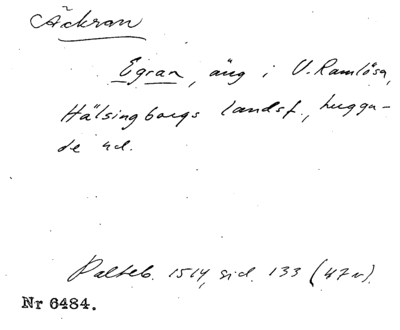 Äckran
Egran, äng i V. Ramlösa,
Hälsingborgs landsf., Luggu-
de hd.
Palteb. 1514, sid. 133 (47 v).
Nr 6484.